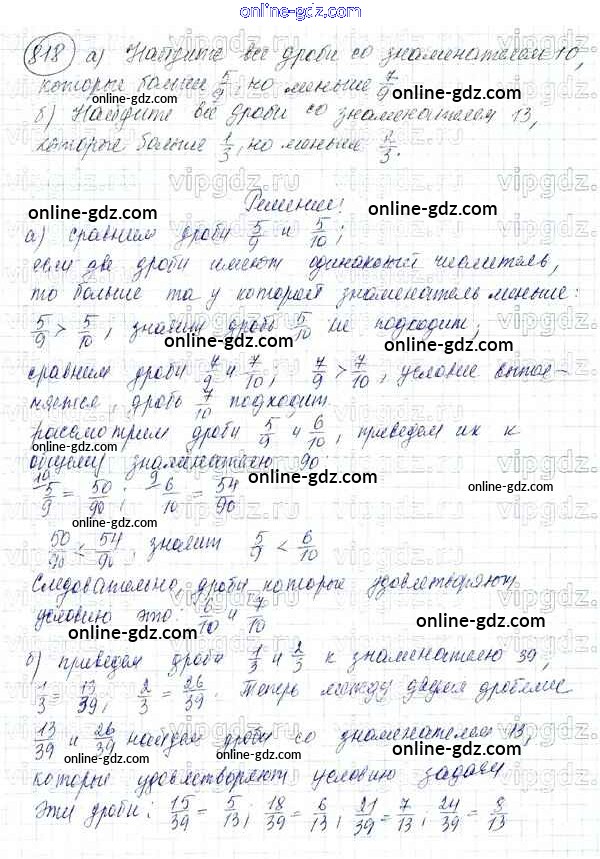 online-gdz.com
818 а) Найдите все дроби со знаменателем 10,
которые больше 5/9, но меньше 7/9
б) Найдите все дроби со знаменателем 13,
которые больше 1/3, но меньше 2/3.
Решение:
а) сравним дроби 5/9 и 5/10;
если две дроби имеют одинаковый числитель,
то больше та у которой знаменатель меньше:
5/9 > 5/10, значит дробь 5/10 не подходит,
сравним дроби 7/9 и 7/10; 7/9 > 7/10, условие выпол-
няется, дробь 7/10 подходит
рассмотрим дроби 5/9 и 6/10, приведем их к
общему знаменателю 90
5/9 = 50/90; 6/10 = 54/90
50/90 < 54/90, значит 5/9 < 6/10
Следовательно, дроби которые удовлетворяют
условию это: 6/10 и 7/10
б) приведем дроби 1/3 и 2/3 к знаменателю 39,
1/3 = 13/39, 2/3 = 26/39. Теперь между двумя дробями
13/39 и 26/39 найдем дроби со знаменателем 13,
которые удовлетворяют условию задачи
Эти дроби: 15/39 = 5/13, 18/39 = 6/13, 21/39 = 7/13, 24/39 = 8/13